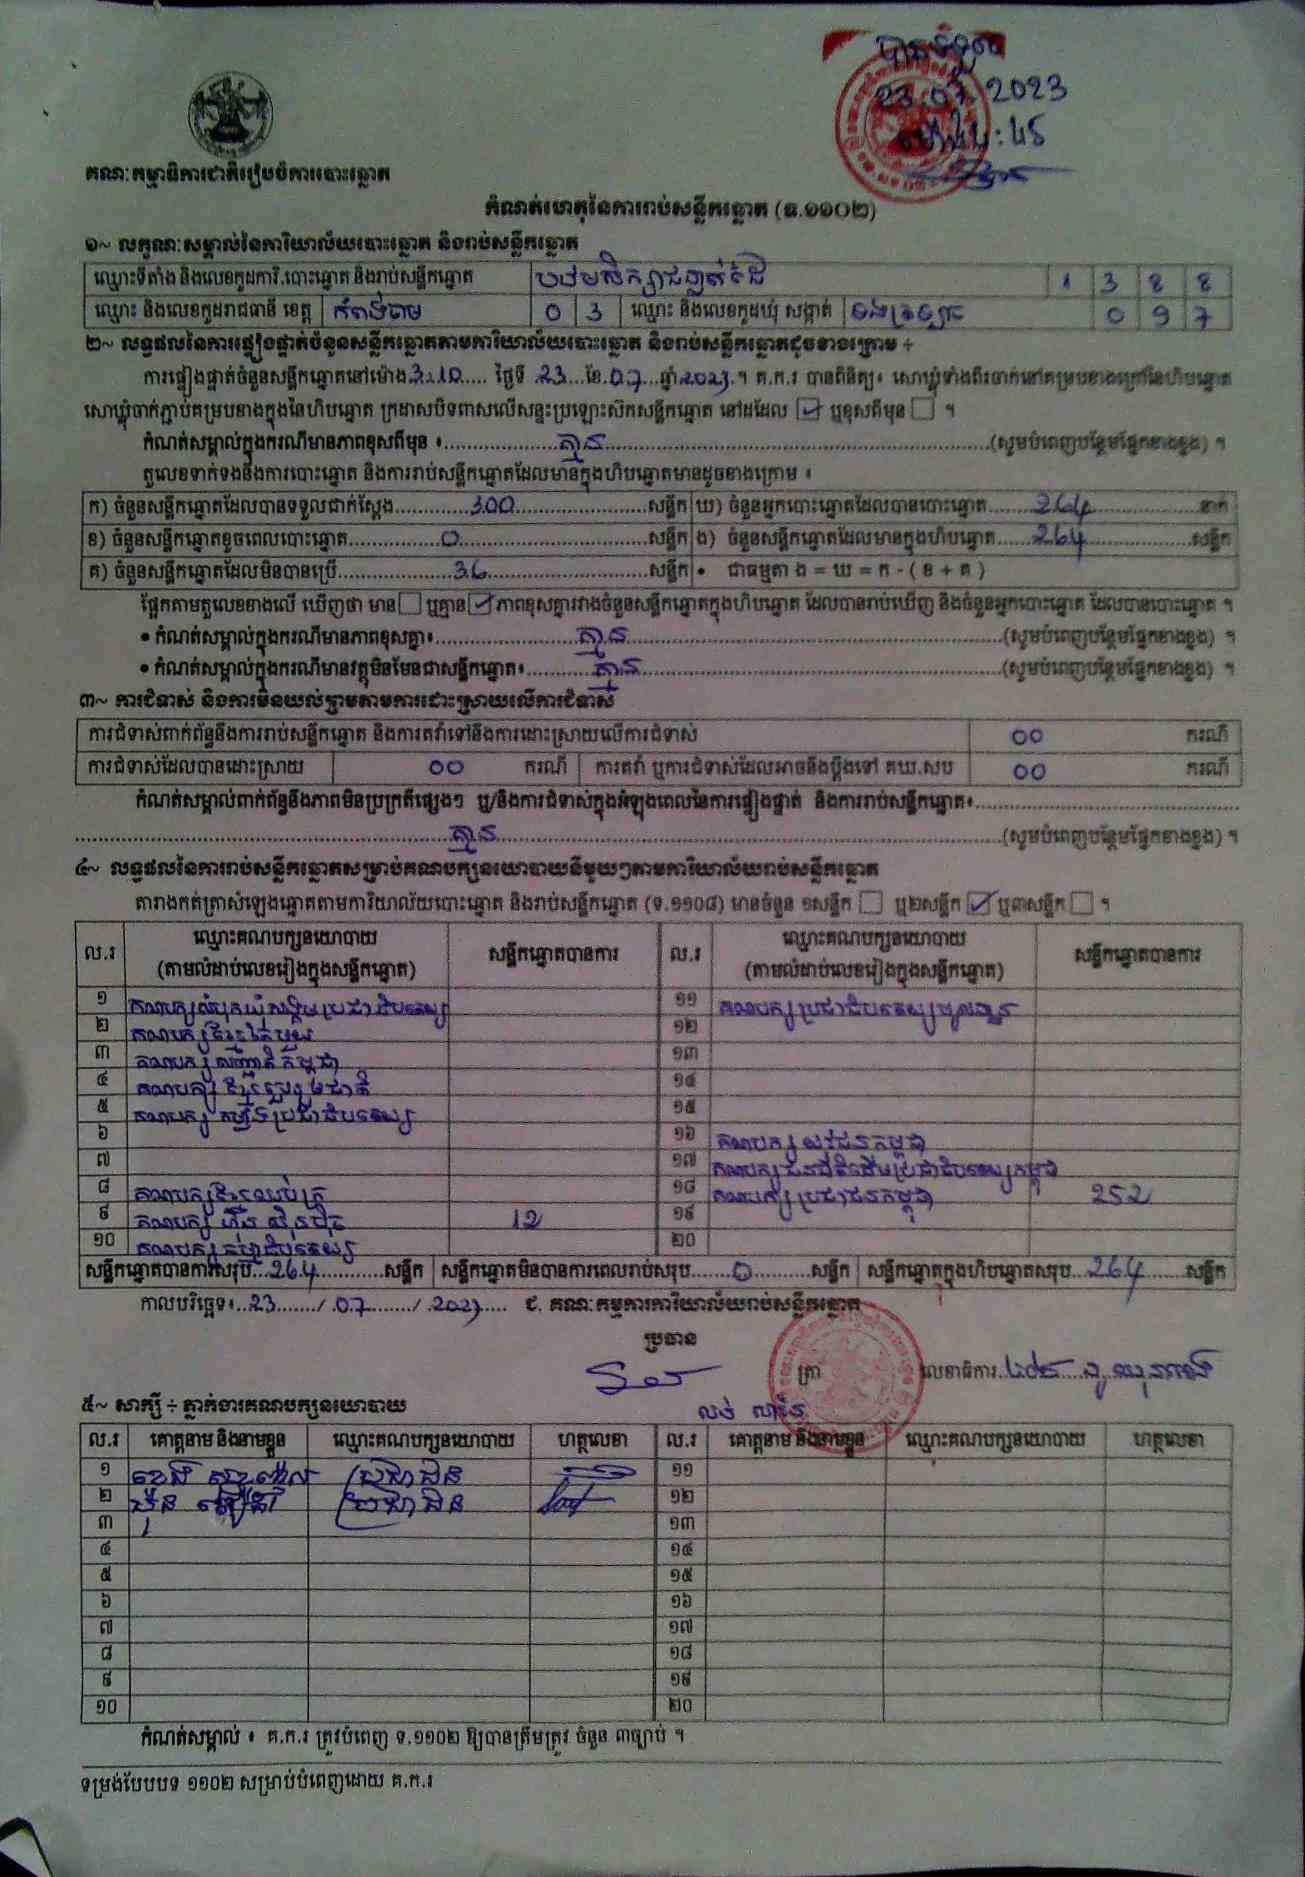 បានទទួល
23.07.2023
គណៈកម្មាធិការជាតិរៀបចំការបោះឆ្នោត
កំណត់ហេតុនៃការរាប់សន្លឹកឆ្នោត (ទ.១១០២)
១~ លក្ខណៈសម្គាល់នៃការិយាល័យបោះឆ្នោត និងរាប់សន្លឹកឆ្នោត
ឈ្មោះទីតាំង និងលេខកូដការិ.បោះឆ្នោត និងរាប់សន្លឹកឆ្នោត បឋមសិក្សា 1 3 8 8
ឈ្មោះ និងលេខកូដរាជធានី ខេត្ត កំពង់ចាម 0 3 ឈ្មោះ និងលេខកូដឃុំ សង្កាត់ 0 9 7
២~ លទ្ធផលនៃការផ្ទៀងផ្ទាត់ចំនួនសន្លឹកឆ្នោតតាមការិយាល័យបោះឆ្នោត និងរាប់សន្លឹកឆ្នោតដូចខាងក្រោម ÷
ការផ្ទៀងផ្ទាត់ចំនួនសន្លឹកឆ្នោតនៅម៉ោង 3:10 ថ្ងៃទី 23 ខែ 07 ឆ្នាំ 2023 ។ គ.ក.រ បានពិនិត្យ៖ សោឃ្លុំទាំងពីរចាក់នៅគម្របខាងក្រៅនៃហិបឆ្នោត
សោឃ្លុំចាក់ភ្ជាប់គម្របខាងក្នុងនៃហិបឆ្នោត ក្រដាសបិទពាសលើសន្ទះប្រឡោះស៊កសន្លឹកឆ្នោត នៅដដែល ☑ ឬខុសពីមុន ☐ ។
កំណត់សម្គាល់ក្នុងករណីមានភាពខុសពីមុន ៖ គ្មាន (សូមបំពេញបន្ថែមផ្នែកខាងខ្នង) ។
តួលេខទាក់ទងនឹងការបោះឆ្នោត និងការរាប់សន្លឹកឆ្នោតដែលមានក្នុងហិបឆ្នោតមានដូចខាងក្រោម ៖
ក) ចំនួនសន្លឹកឆ្នោតដែលបានទទួលជាក់ស្តែង 300 សន្លឹក ឃ) ចំនួនអ្នកបោះឆ្នោតដែលបានបោះឆ្នោត 264 នាក់
ខ) ចំនួនសន្លឹកឆ្នោតខូចពេលបោះឆ្នោត 0 សន្លឹក ង) ចំនួនសន្លឹកឆ្នោតដែលមានក្នុងហិបឆ្នោត 264 សន្លឹក
គ) ចំនួនសន្លឹកឆ្នោតដែលមិនបានប្រើ 36 សន្លឹក • ជាធម្មតា ង = ឃ = ក - ( ខ + គ )
ផ្អែកតាមតួលេខខាងលើ ឃើញថា មាន ☐ ឬគ្មាន ☑ ភាពខុសគ្នារវាងចំនួនសន្លឹកឆ្នោតក្នុងហិបឆ្នោត ដែលបានរាប់ឃើញ និងចំនួនអ្នកបោះឆ្នោត ដែលបានបោះឆ្នោត ។
• កំណត់សម្គាល់ក្នុងករណីមានភាពខុសគ្នា៖ គ្មាន (សូមបំពេញបន្ថែមផ្នែកខាងខ្នង) ។
• កំណត់សម្គាល់ក្នុងករណីមានវត្ថុមិនមែនជាសន្លឹកឆ្នោត៖ គ្មាន (សូមបំពេញបន្ថែមផ្នែកខាងខ្នង) ។
៣~ ការជំទាស់ និងការមិនយល់ព្រមតាមការដោះស្រាយលើការជំទាស់
ការជំទាស់ពាក់ព័ន្ធនឹងការរាប់សន្លឹកឆ្នោត និងការតវ៉ាទៅនឹងការដោះស្រាយលើការជំទាស់ 00 ករណី
ការជំទាស់ដែលបានដោះស្រាយ 00 ករណី ការតវ៉ា ឬការជំទាស់ដែលអាចនឹងប្តឹងទៅ គឃ.សប 00 ករណី
កំណត់សម្គាល់ពាក់ព័ន្ធនឹងភាពមិនប្រក្រតីផ្សេងៗ ឬ/និងការជំទាស់ក្នុងអំឡុងពេលនៃការផ្ទៀងផ្ទាត់ និងការរាប់សន្លឹកឆ្នោត៖
គ្មាន (សូមបំពេញបន្ថែមផ្នែកខាងខ្នង) ។
៤~ លទ្ធផលនៃការរាប់សន្លឹកឆ្នោតសម្រាប់គណបក្សនយោបាយនីមួយៗតាមការិយាល័យរាប់សន្លឹកឆ្នោត
តារាងកត់ត្រាសំឡេងឆ្នោតតាមការិយាល័យបោះឆ្នោត និងរាប់សន្លឹកឆ្នោត (ទ.១១០៨) មានចំនួន ១សន្លឹក ☐ ឬ២សន្លឹក ☑ ឬ៣សន្លឹក ☐ ។
ល.រ ឈ្មោះគណបក្សនយោបាយ (តាមលំដាប់លេខរៀងក្នុងសន្លឹកឆ្នោត) សន្លឹកឆ្នោតបានការ ល.រ ឈ្មោះគណបក្សនយោបាយ (តាមលំដាប់លេខរៀងក្នុងសន្លឹកឆ្នោត) សន្លឹកឆ្នោតបានការ
១ គណបក្សសំបុកឃ្មុំសង្គមប្រជាធិបតេយ្យ ១១ គណបក្សប្រជាធិបតេយ្យមូលដ្ឋាន
២ គណបក្សខ្មែរតែមួយ ១២
៣ គណបក្សសញ្ជាតិកម្ពុជា ១៣
៤ គណបក្សខ្មែររួបរួមជាតិ ១៤
៥ គណបក្សកម្លាំងប្រជាធិបតេយ្យ ១៥
៦ ១៦ គណបក្សយុវជនកម្ពុជា
៧ ១៧ គណបក្សជនជាតិដើមប្រជាធិបតេយ្យកម្ពុជា
៨ គណបក្សខ្មែរឈប់ក្រ ១៨ គណបក្សប្រជាជនកម្ពុជា 252
៩ គណបក្សហ៊្វុនស៊ិនប៉ិច 12 ១៩
១០ គណបក្សធម្មាធិបតេយ្យ ២០
សន្លឹកឆ្នោតបានការសរុប 264 សន្លឹក សន្លឹកឆ្នោតមិនបានការពេលរាប់សរុប 0 សន្លឹក សន្លឹកឆ្នោតក្នុងហិបឆ្នោតសរុប 264 សន្លឹក
កាលបរិច្ឆេទ៖ 23 / 07 / 2023 ជ. គណៈកម្មការការិយាល័យរាប់សន្លឹកឆ្នោត
ប្រធាន
ត្រា លេខាធិការ
៥~ សាក្សី ÷ ភ្នាក់ងារគណបក្សនយោបាយ
ល.រ គោត្តនាម និងនាមខ្លួន ឈ្មោះគណបក្សនយោបាយ ហត្ថលេខា ល.រ គោត្តនាម និងនាមខ្លួន ឈ្មោះគណបក្សនយោបាយ ហត្ថលេខា
១ ប្រជាជន ១១
២ ប្រជាជន ១២
៣ ១៣
៤ ១៤
៥ ១៥
៦ ១៦
៧ ១៧
៨ ១៨
៩ ១៩
១០ ២០
កំណត់សម្គាល់ ៖ គ.ក.រ ត្រូវបំពេញ ទ.១១០២ ឱ្យបានត្រឹមត្រូវ ចំនួន ៣ច្បាប់ ។
ទម្រង់បែបបទ ១១០២ សម្រាប់បំពេញដោយ គ.ក.រ